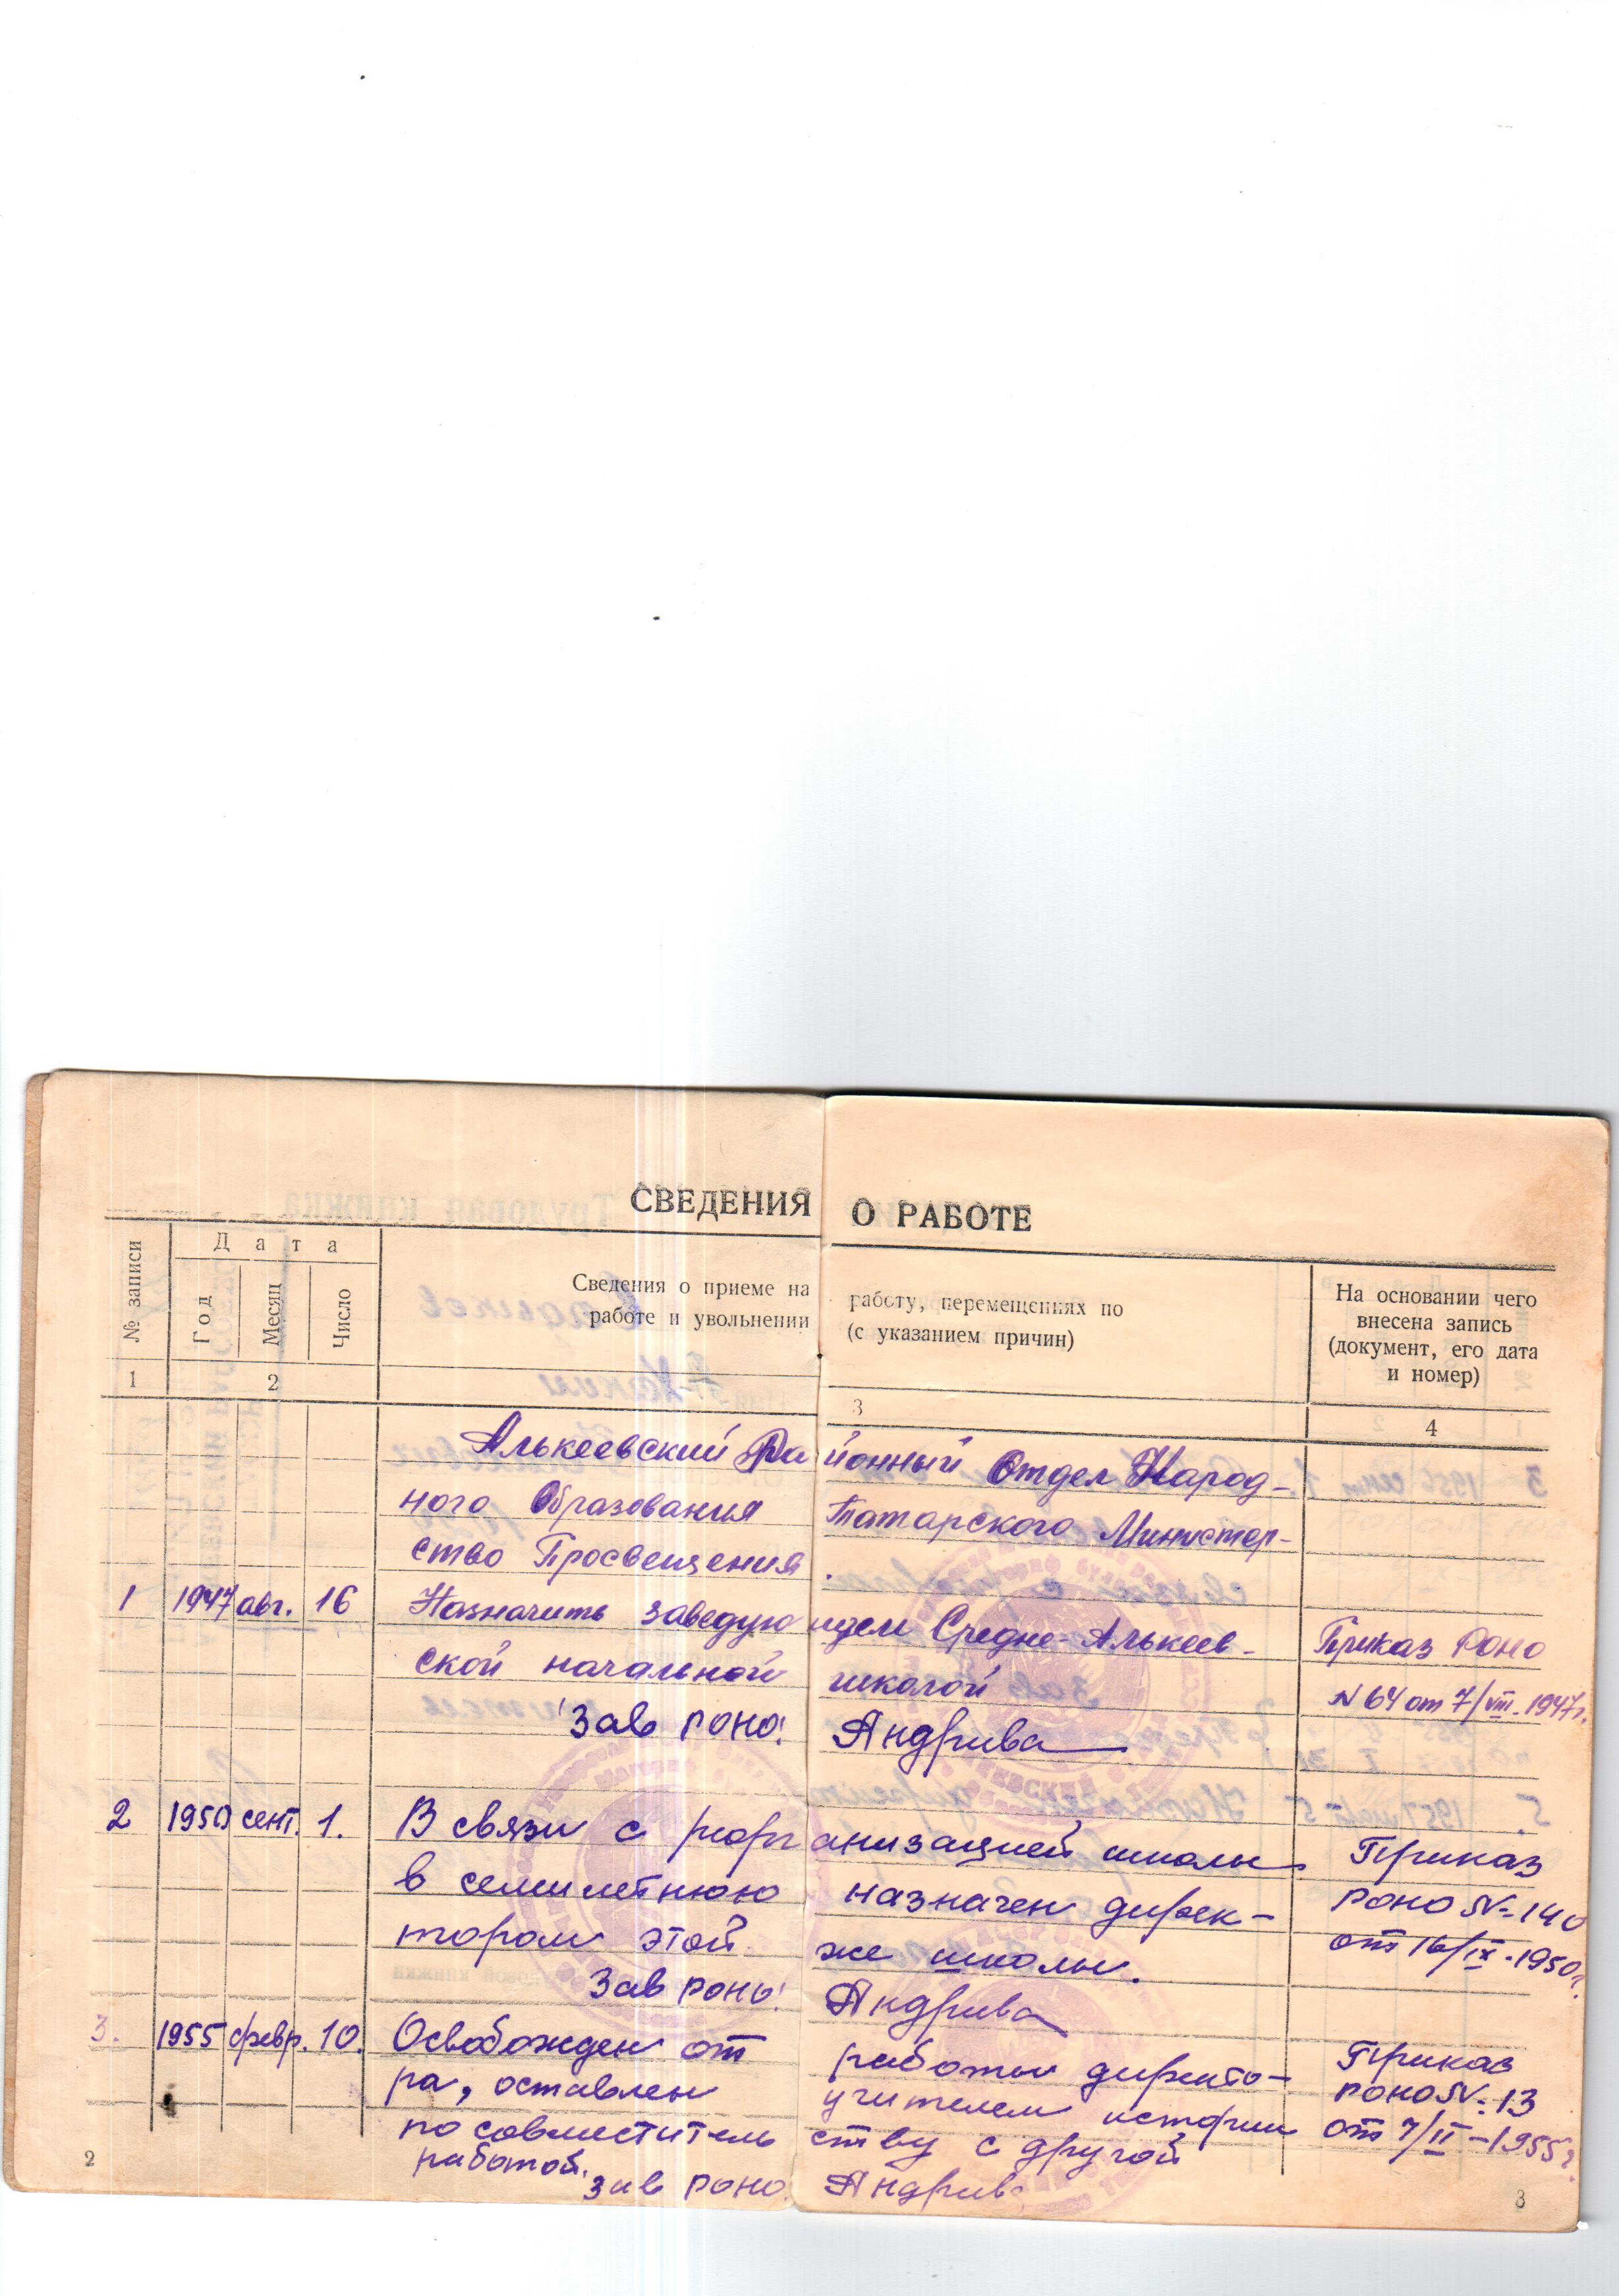 СВЕДЕНИЯ О РАБОТЕ
№ записи
Дата
Год
Месяц
Число
Сведения о приеме на работу, перемещениях по
работе и увольнении (с указанием причин)
На основании чего
внесена запись
(документ, его дата
и номер)
1 2 3 4
Алькеевский Районный Отдел Народ-
ного Образования Татарского Министер-
ство Просвещения.
1 1947 авг. 16 Назначить заведующем Средне-Алькеев- Приказ РОНО
ской начальной школой N 64 от 7/VIII-1947г.
Зав РОНО: Андрива
2 1950 сент. 1. В связи с реорганизацией школы Приказ
в семилетнюю назначен дирек- РОНО N-140
тором этой же школы. от 16/IX-1950г.
Зав РОНО: Андрива
3. 1955 февр. 10. Освобожден от работы директо- Приказ
ра, оставлен учителем истории РОНО N-13
по совместительству с другой от 7/II-1955г.
работой.
Зав РОНО
2 3